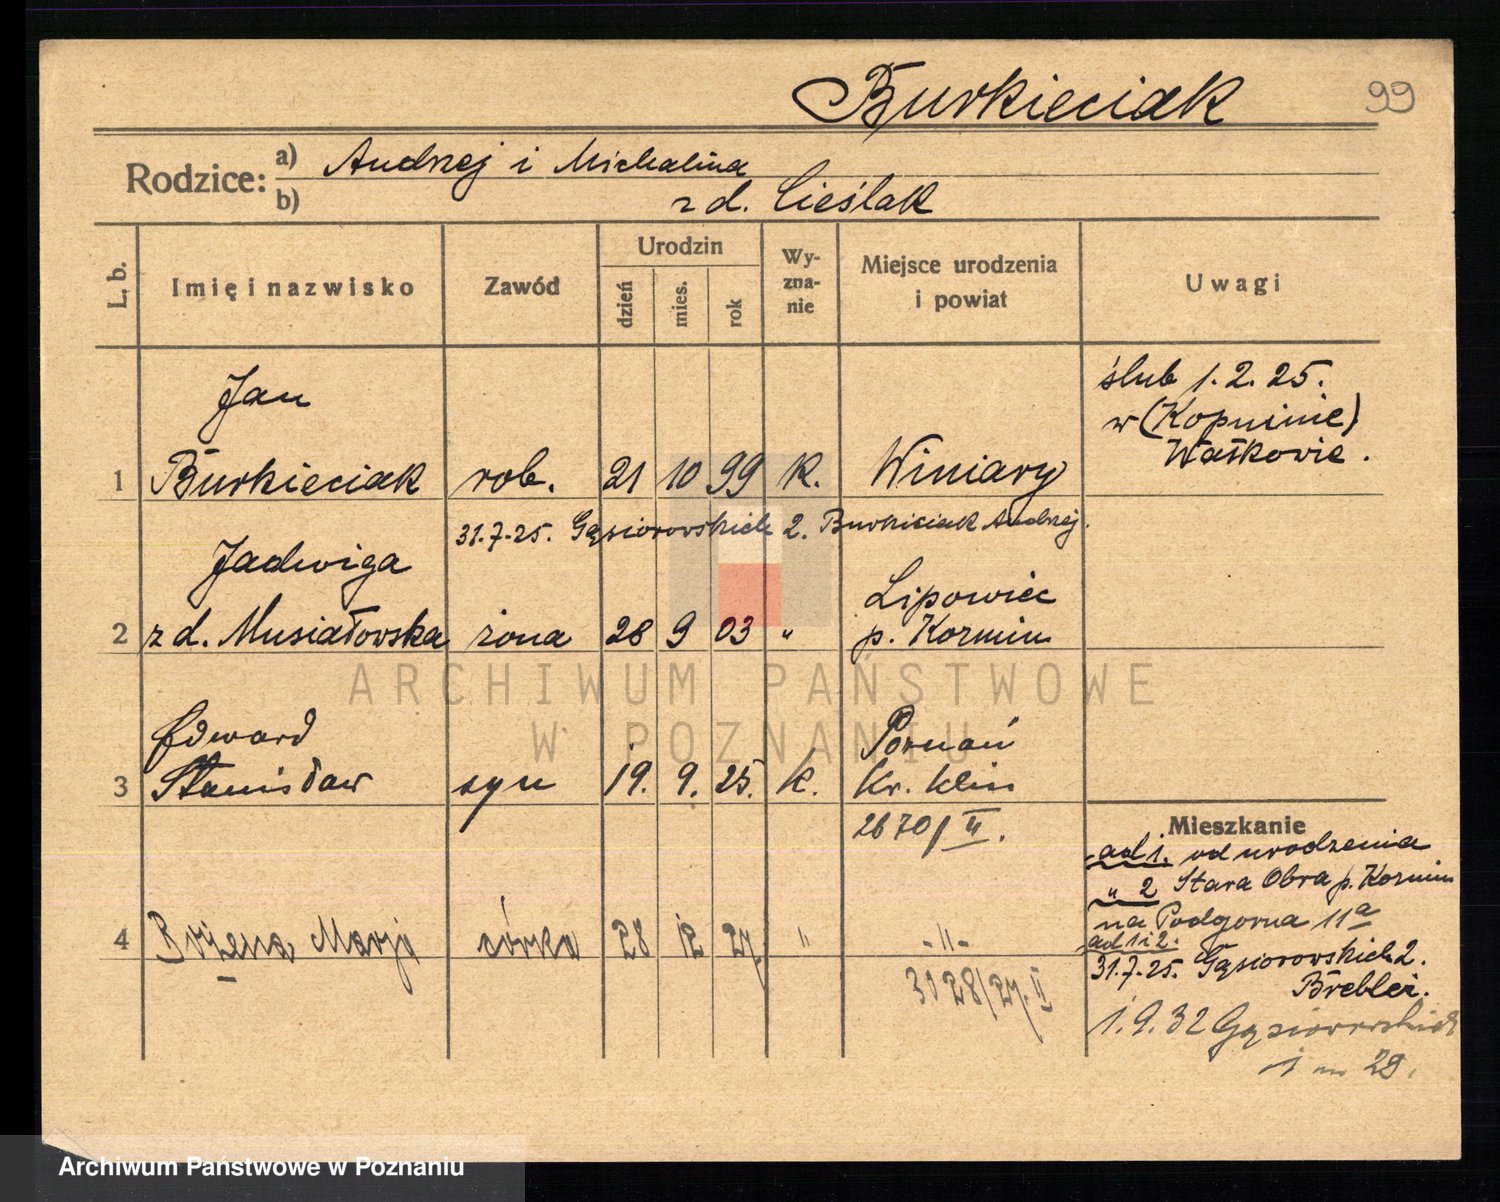 Burkieciak
99
Rodzice:
a) Andrzej i Michalina
b) z d. Cieślak
L. b.
Imię i nazwisko
Zawód
Urodzin
dzień
mies.
rok
Wy-
zna-
nie
Miejsce urodzenia
i powiat
Uwagi
Jan
1 Burkieciak rob. 21 10 99 k. Winiary
ślub 1.2.25.
w (Kopuinie)
Wałkowie.
31.7.25. Gąsiorowskich 2. Burkieciak Andrzej.
Jadwiga
2 z d. Musiałowska żona 28 9 03 " Lipowiec
p. Kozmin
Edward
3 Stanisław syn 19. 9. 25. k. Poznań
Kr. klin
2670/II.
4 Bożena Marja córka 28 12 27 " -"-
3028/27. II
Mieszkanie
ad 1. od urodzenia
" 2 Stara Obra p. Kozmin
na Podgorna 11a
ad 1 i 2.
31.7.25. Gąsiorowskich 2.
1.9.32 Gąsiorowskich
1 m 29.
ARCHIWUM PAŃSTWOWE
W POZNANIU
Archiwum Państwowe w Poznaniu